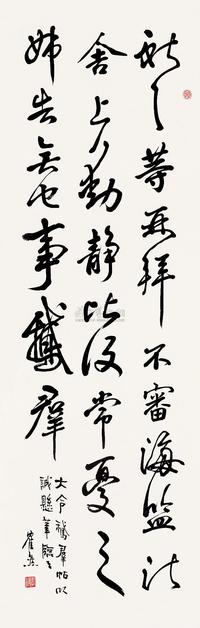 献之等再拜不審海監諸
舍上下動靜比復常憂之
姊告无它事鵝羣
大令鵝羣帖以
誠懸筆臨之